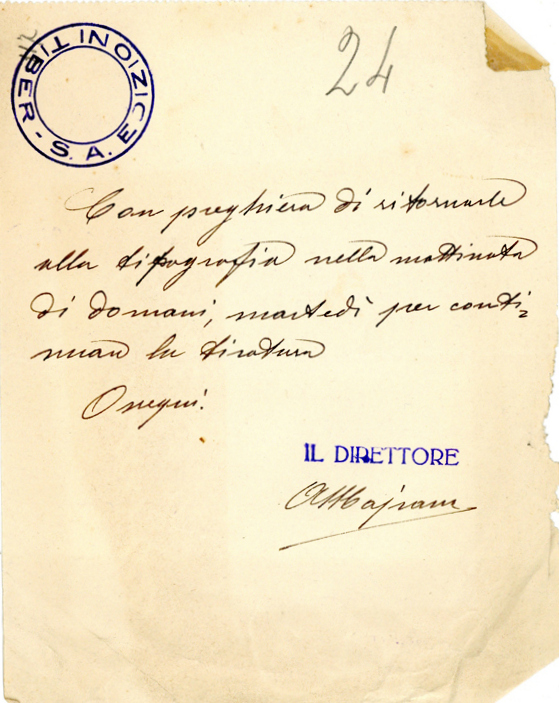 EDIZIONI TIBER - S.A.
24
Con preghiera di ritornarle
alla tipografia nella mattinata
di domani, martedì per conti=
nuare la tiratura
Ossequi.
IL DIRETTORE